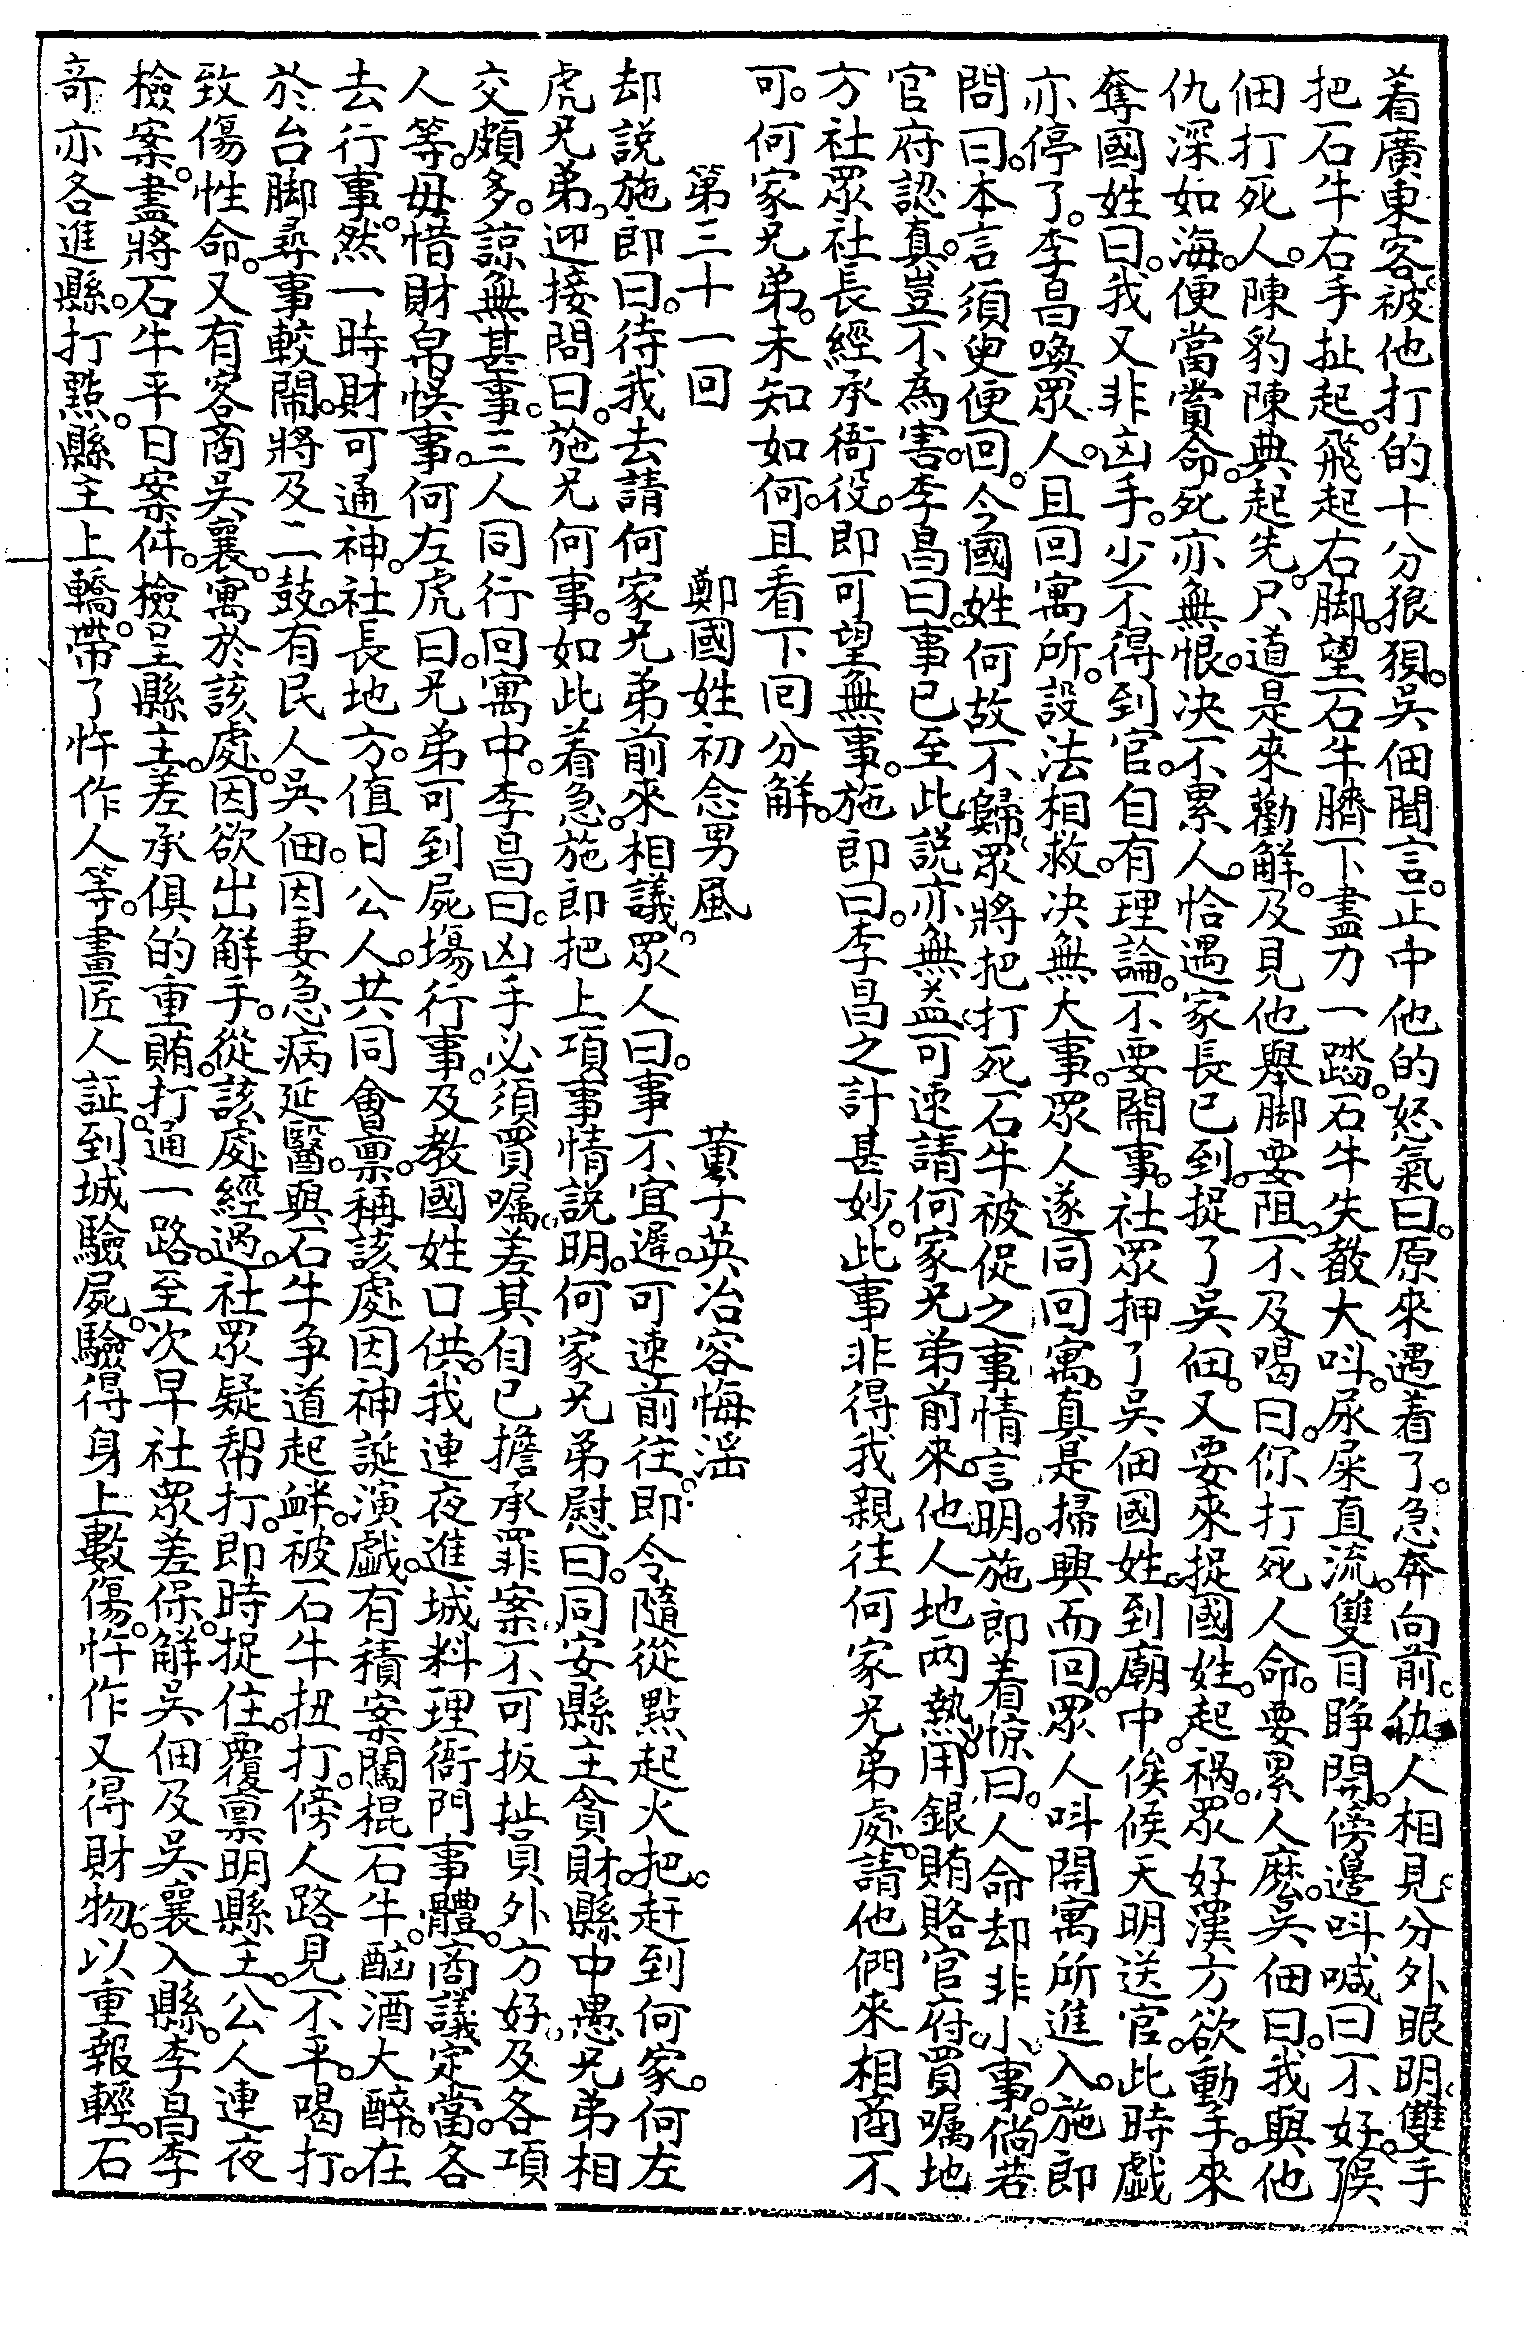 着廣東客。被他打的十分狼狽。吳佃聞言。正中他的怒氣曰。原來遇着了。急奔向前。仇人相見。分外眼明。雙手
把石牛右手扯起。飛起右脚。望石牛臍下盡力一踏。石牛失聲大呌。尿屎直流。雙目睁開。傍邊呌喊曰不好。
佃打死人。陳豹陳典起先。只道是來勸解。及見他舉脚要阻。不及喝曰。你打死人命。要累人麽。吳佃曰。我與他
仇深如海。便當賞命。死亦無恨。决不累人。恰遇家長已到。捉了吳佃。又要來捉國姓。起祸。眾好漢方欲動手。來
奪國姓。曰。我又非凶手。少不得到官。自有理論。不要鬧事。社眾押了吳佃國姓。到廟中俟候天明送官。此時戯
亦停了。李昌喚眾人。且回寓所。設法相救。决無大事。眾人遂同回寓。真是掃興而回。眾人呌開寓所進入。施即
問曰。本言須臾便回。今國姓何故不歸。眾將把打死石牛被促之事情言明。施即着惊曰。人命却非小事。倘若
官府認真。豈不為害。李昌曰。事已至此。説亦無益。可速請何家兄弟前來。他人地两熟。用銀賄賂官府。買嘱地
方社眾社長經承衙役。即可望無事。施即曰。李昌之計甚妙。此事非得我親往何家兄弟處。請他們來相商不
可。何家兄弟。未知如何。且看下囘分解。
第三十一回　鄭國姓初念男風　黄子英冶容悔滛
却説施即曰。待我去請何家兄弟前來相議。眾人曰。事不宜遲。可速前往。即令隨從點起火把。赶到何家。何左
虎兄弟。迎接問曰。施兄何事。如此着急。施即把上項事情説明。何家兄弟慰曰。同安縣主貪財。縣中愚兄弟相
交頗多。諒無甚事。三人同行回寓中。李昌曰。凶手必須買嘱。差其自己擔承罪案。不可扳扯員外方好。及各項
人等。毋惜財帛悞事。何左虎曰。兄弟可到屍塲行事。及教國姓口供。我連夜進城料理衙門事體。商議定當。各
去行事。然一時財可通神。社長地方。值日公人。共同會禀。稱該處因神誕演戯。有積案闖棍石牛。酗酒大醉。在
於台脚尋事較鬧。將及二鼓。有民人吳佃。因妻急病延醫。與石牛争道起衅。被石牛扭打。傍人路見不平。喝打
致傷性命。又有客商吳襄。寓於該處。因欲出解手。從該處經過。社眾疑帮打。即時捉住。覆禀明縣主。公人連夜
檢案。盡將石牛平日案件。檢呈縣主。差承俱的重賄。打通一路。至次早社眾差保。解吳佃及吳襄入縣。李昌李
竒亦各進縣。打點。縣主上轎。帶了忤作人等。畫匠人証。到城驗屍。驗得身上數傷。忤作又得財物。以重報輕。石